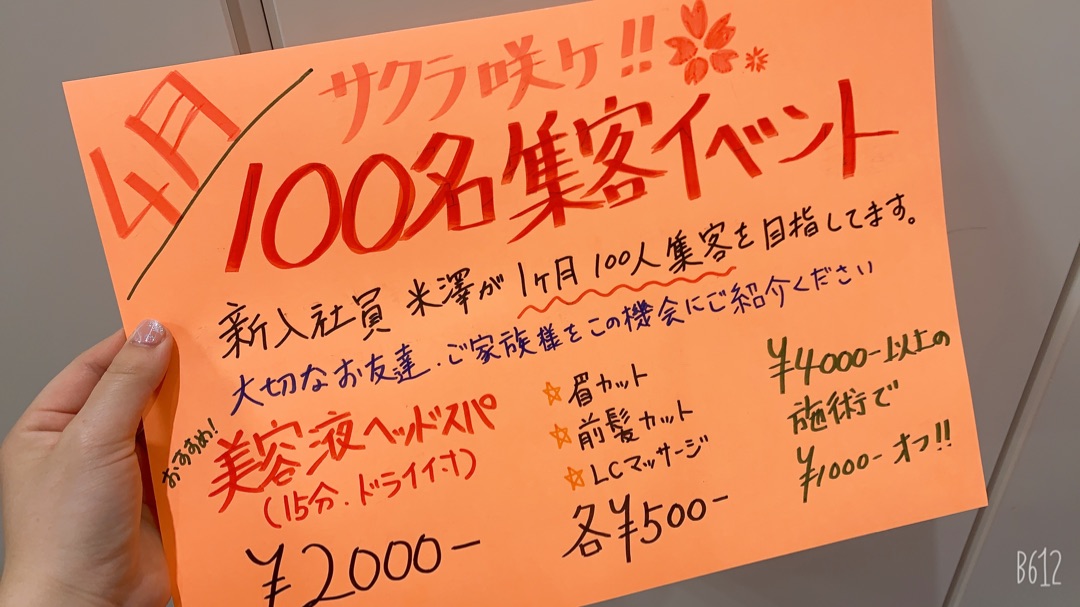 4月
サクラ咲ケ!!
100名集客イベント
新入社員 米澤が1ヶ月100人集客を目指してます。
大切なお友達、ご家族様をこの機会にご紹介ください
おすすめ!
美容液ヘッドスパ
(15分、ドライ付)
¥2000-
☆眉カット
☆前髪カット
☆LCマッサージ
各¥500-
¥4000-以上の
施術で
¥1000-オフ!!
B612